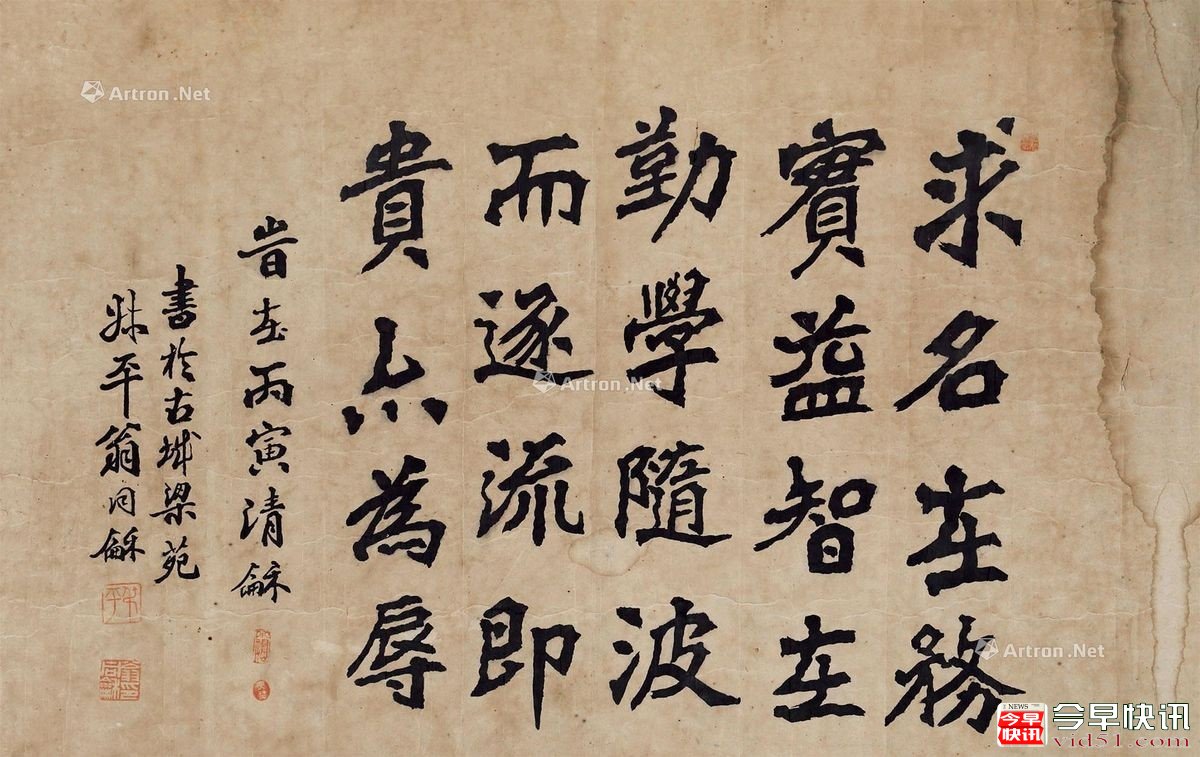 求名在務
實益智在
勤學隨波
而遂流即
貴亦為辱
旹在丙寅清龢
書於古城梁苑
姝平翁同龢
Artron.Net
Artron.Net
Artron.Net
NEWS
今早快讯
今早快讯
vid51.com